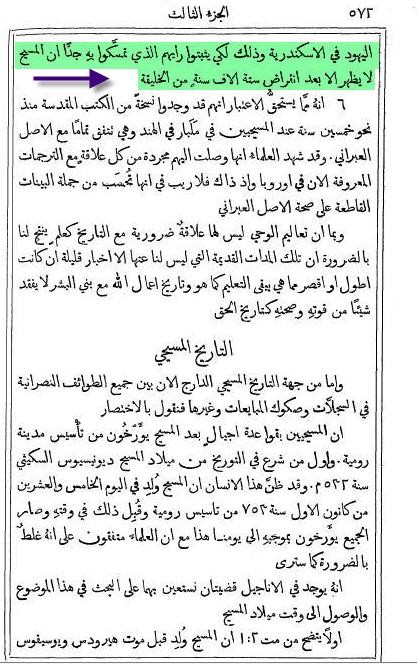 ٥٧٢ الجزء الثالث
اليهود في الاسكندرية وذلك لكي يثبتوا رايهم الذي تمسَّكوا بهِ جدًّا ان المسيح
لا يظهر الا بعد انقراض ستة الاف سنةٍ من الخليقة
٦ انهُ ممَّا يستحقُّ الاعتبار انهم قد وجدوا نسخةً من الكتب المقدسة منذ
نحو خمسين سنة عند المسيحيين في ملَبار في الهند وهي تتفق تمامًا مع الاصل
العبراني. وقد شهد العلماء انها وصلت اليهم مجردة من كل علاقةٍ مع الترجمات
المعروفة الان في اوروبا وإذ ذاك فلا ريب في انها تُحسَب من جملة البينات
القاطعة على صحة الاصل العبراني
وبما ان تعاليم الوحي ليس لها علاقةٌ ضرورية مع التاريخ كعلمٍ ينتج لنا
بالضرورة ان تلك المدات القديمة التي ليس لنا عنها الا اخبار قليلة ان كانت
اطول او اقصر مما هي يبقى التعليم كما هو وتاريخ اعمال الله مع بني البشر لا يفقد
شيئًا من قوتهِ وصحتهِ كتاريخ الحق
التاريخ المسيحي
وإما من جهة التاريخ المسيحي الدارج الان بين جميع الطوائف النصرانية
في السجلَّات وصكوك المبايعات وغيرها فنقول بالاختصار
ان المسيحيين بقوا عدة اجيالٍ بعد المسيح يورِّخون من تأسيس مدينة
رومية. وأول من شرع في التوريخ من ميلاد المسيح ديونيسيوس السكيثي
سنة ٥٣٢م. وقد ظنَّ هذا الانسان ان المسيح وُلِد في اليوم الخامس والعشرين
من كانون الاول سنة ٧٥٣ من تاسيس رومية وقُبِل ذلك في وقتهِ وصار
الجميع يورخون بموجبهِ الى يومنا هذا مع ان العلماء متفقون على انهُ غلطٌ
بالضرورة كما سترى
انهُ يوجد في الاناجيل قضيتان نستعين بها على البحث في هذا الموضوع
والوصول الى وقت ميلاد المسيح
اولاً يتضح من مت ١:٢ ان المسيح وُلِد قبل موت هيرودس ويوسيفوس